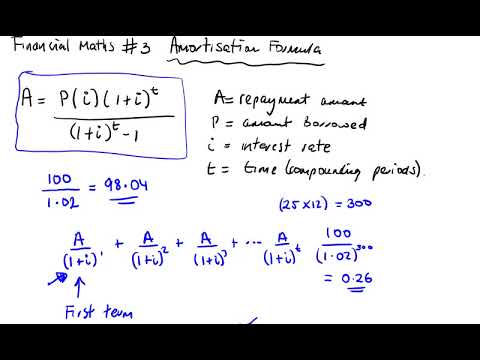 Financial Maths #3 Amortisation Formula
A = P(i)(1+i)^t / (1+i)^t - 1
A = repayment amount
P = amount borrowed
i = interest rate
t = time (compounding periods).
100 / 1.02 = 98.04
(25 x 12) = 300
A/(1+i)^1 + A/(1+i)^2 + A/(1+i)^3 + ... A/(1+i)^t
100 / (1.02)^300
= 0.26
First term